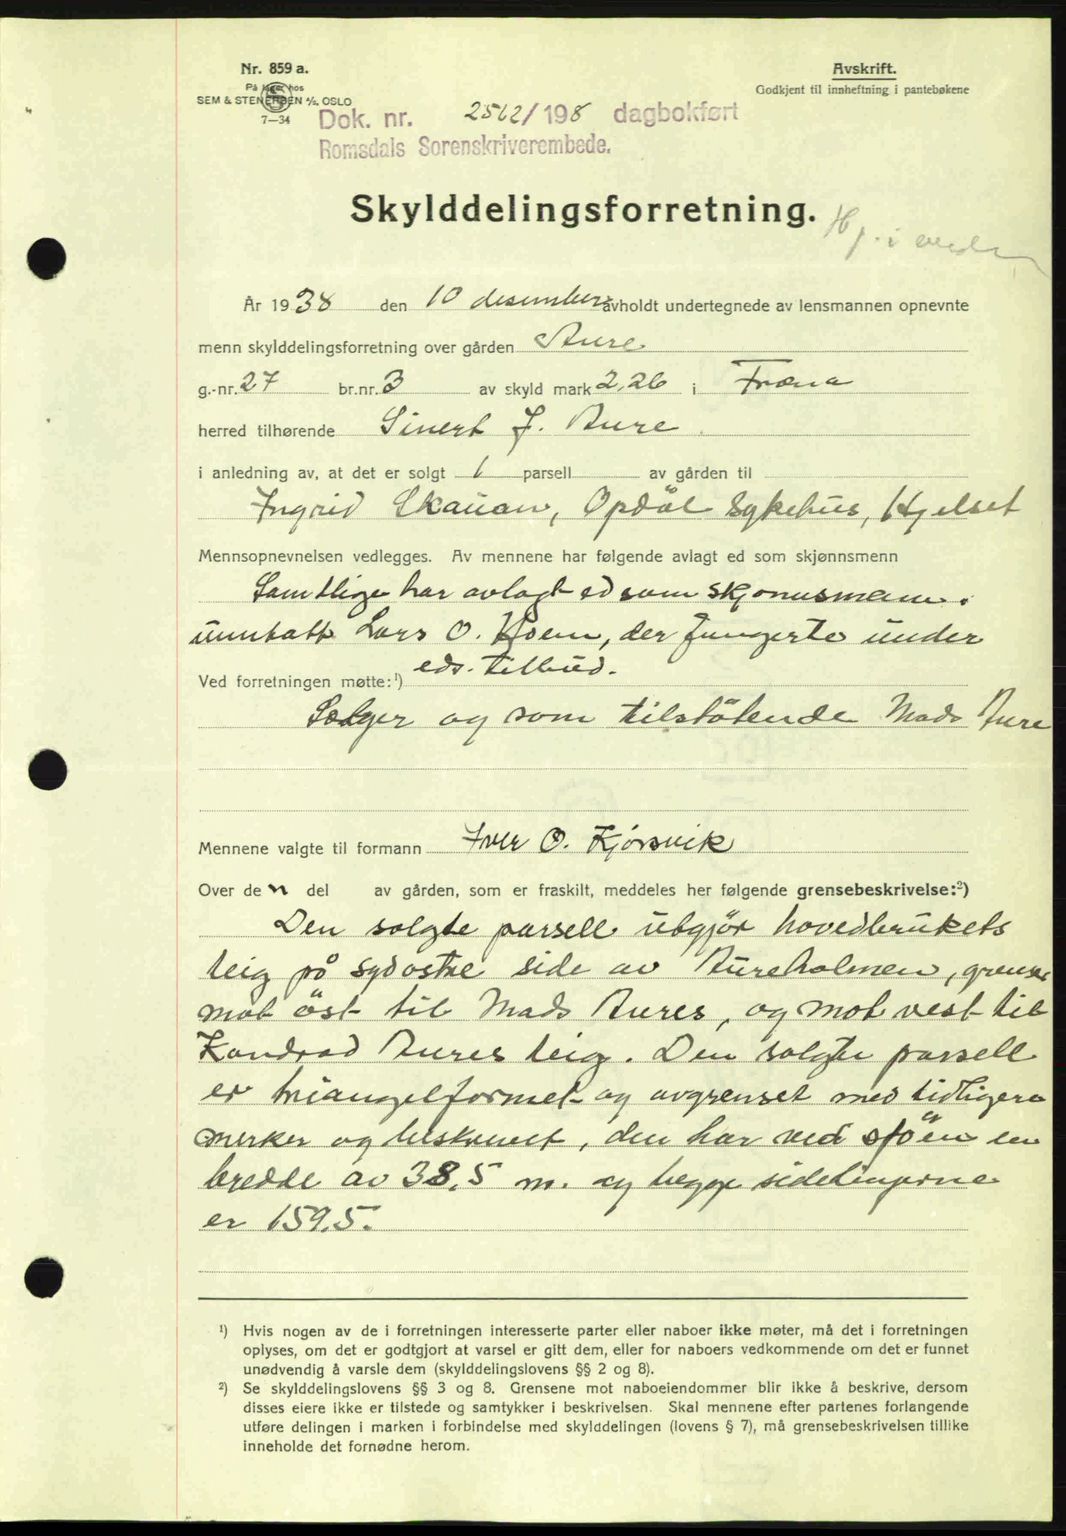 Nr. 859 a.
På lager hos
SEM & STENERSEN A/S, OSLO
7—34
Avskrift.
Godkjent til innheftning i pantebøkene
Dok. nr. 2562/1938 dagbokført
Romsdals Sorenskriverembede.
Skylddelingsforretning.
År 1938 den 10 desember avholdt undertegnede av lensmannen opnevnte
menn skylddelingsforretning over gården Aure
g.-nr. 27 br.nr. 3 av skyld mark 2,26 i Fræna
herred tilhørende Sivert J. Aure
i anledning av, at det er solgt 1 parsell av gården til
Ingrid Skauan, Opdöl sykehus, Hjelset
Mennsopnevnelsen vedlegges. Av mennene har følgende avlagt ed som skjønnsmenn
Samtlige har avlagt ed som skjønnsmenn.
unntatt Lars O. Moen, der fungerte under
eds. tilbud.
Ved forretningen møtte:¹)
Selger og som tilstötende Mads Aure
Mennene valgte til formann Iver O. Kjörsvik
Over den del av gården, som er fraskilt, meddeles her følgende grensebeskrivelse:²)
Den solgte parsell utgjör hovedbrukets
teig på sydostre side av Aureholmen, grenser
mot öst til Mads Aures, og mot vest til
Kondrad Aures teig. Den solgte parsell
er triangelformet og avgrenset med tidligere
merker og beskrevet, den har ved sjöen en
bredde av 38,5 m. og begge sidelinjerne
er 159,5.
¹) Hvis nogen av de i forretningen interesserte parter eller naboer ikke møter, må det i forretningen
oplyses, om det er godtgjort at varsel er gitt dem, eller for naboers vedkommende om det er funnet
unødvendig å varsle dem (skylddelingslovens §§ 2 og 8).
²) Se skylddelingslovens §§ 3 og 8. Grensene mot naboeiendommer blir ikke å beskrive, dersom
disses eiere ikke er tilstede og samtykker i beskrivelsen. Skal mennene efter partenes forlangende
utføre delingen i marken i forbindelse med skylddelingen (lovens § 7), må grensebeskrivelsen tillike
inneholde det fornødne herom.